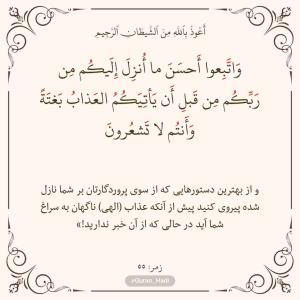 أَعُوذُ بِٱللَّهِ مِنَ ٱلشَّيطَانِ ٱلرَّجِيمِ
وَاتَّبِعوا أَحسَنَ ما أُنزِلَ إِلَيكُم مِن
رَبِّكُم مِن قَبلِ أَن يَأتِيَكُمُ العَذابُ بَغتَةً
وَأَنتُم لا تَشعُرونَ
و از بهترین دستورهایی که از سوی پروردگارتان بر شما نازل
شده پیروی کنید پیش از آنکه عذاب (الهی) ناگهان به سراغ
شما آید در حالی که از آن خبر ندارید!»
زمر: ۵۵
@Quran_Hadi